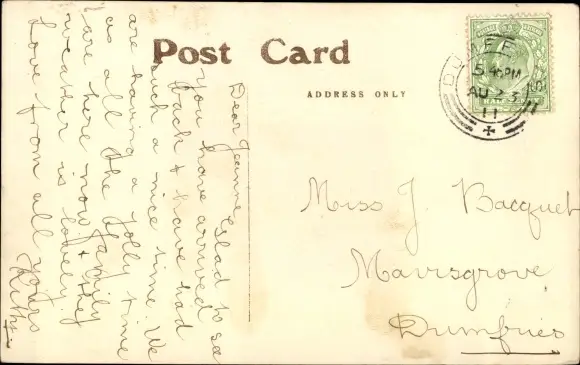 Post Card
ADDRESS ONLY
DUMFRIES
5.45PM
AU 23
11
Dear Jeanne, Glad to see
you have arrived
back & have had
such a nice time. We
are having a jolly time
as all the family
are here now & the
weather is lovely.
Love from all yours
Miss J. Bacquet
Mavisgrove
Dumfries